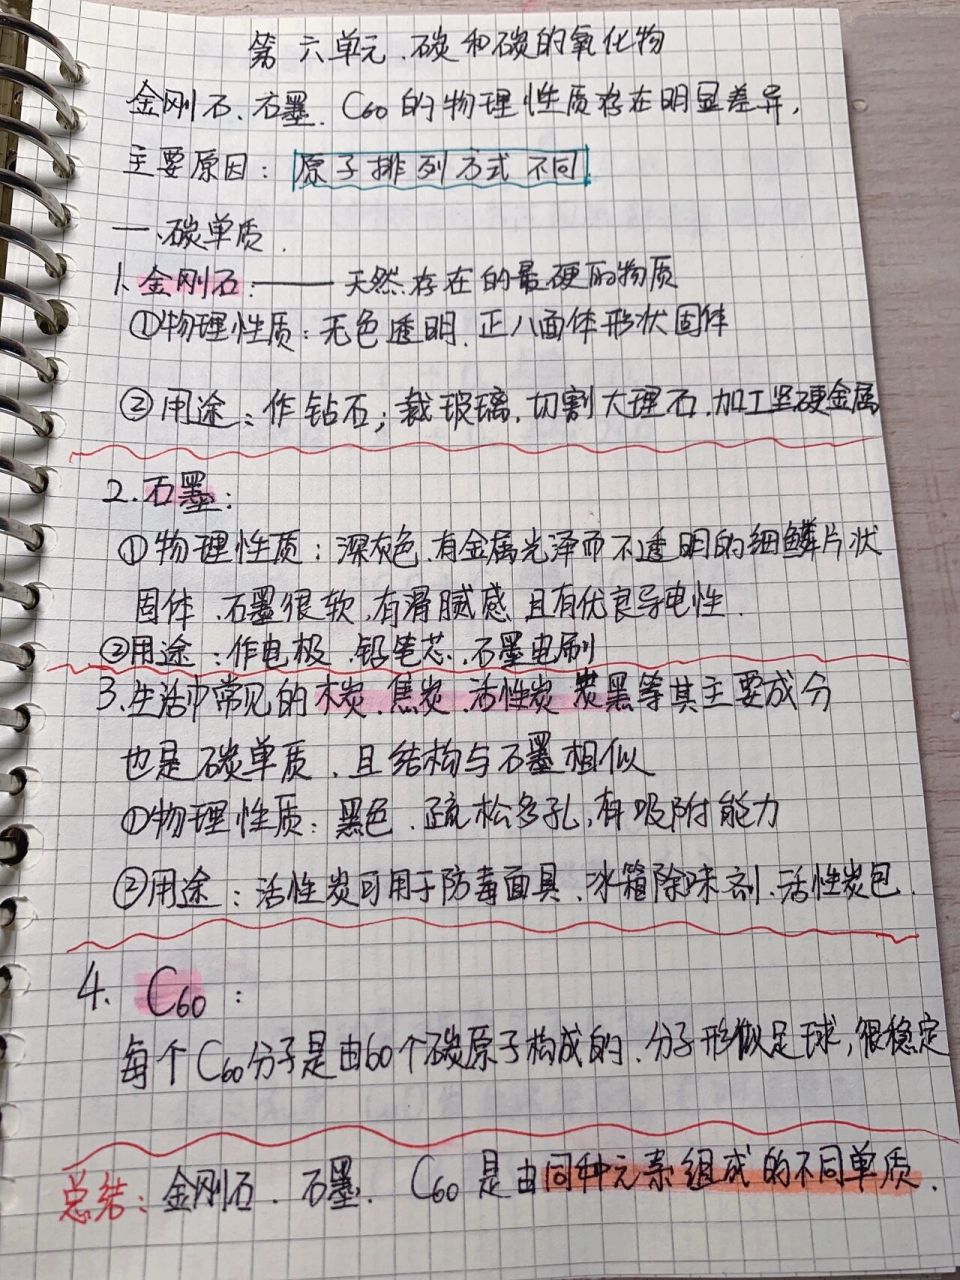 第六单元、碳和碳的氧化物
金刚石、石墨、C60的物理性质存在明显差异,
主要原因：原子排列方式不同
一、碳单质.
1、金刚石：——天然存在的最硬的物质
①物理性质：无色透明、正八面体形状固体
②用途：作钻石；裁玻璃、切割大理石、加工坚硬金属
2.石墨：
①物理性质：深灰色、有金属光泽而不透明的细鳞片状
固体、石墨很软、有滑腻感、且有优良导电性.
②用途：作电极、铅笔芯、石墨电刷
3.生活中常见的木炭、焦炭、活性炭 炭黑等其主要成分
也是碳单质、且结构与石墨相似
①物理性质：黑色、疏松多孔,有吸附能力
②用途：活性炭可用于防毒面具、冰箱除味剂、活性炭包.
4. C60：
每个C60分子是由60个碳原子构成的、分子形似足球,很稳定
总结：金刚石、石墨、C60是由同种元素组成的不同单质.